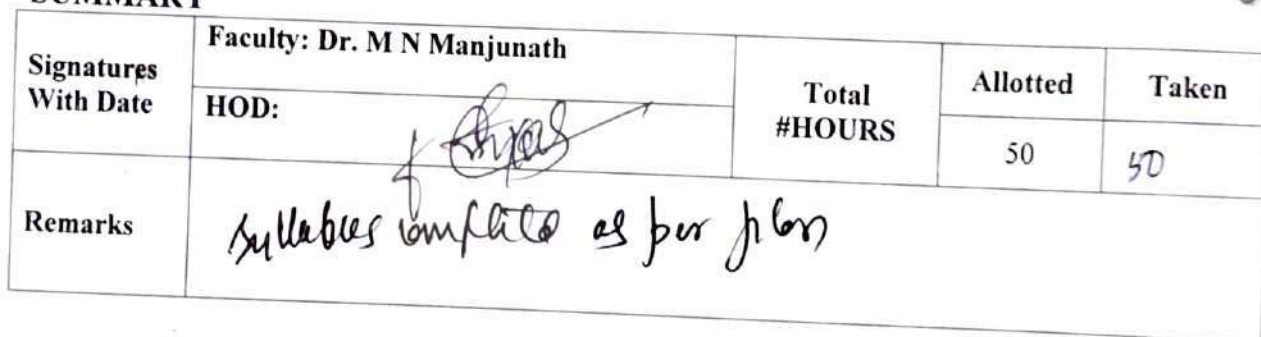 SUMMARY
Signatures With Date
Faculty: Dr. M N Manjunath
HOD:
Total #HOURS
Allotted
Taken
50
50
Remarks
Syllabus complete as per plan